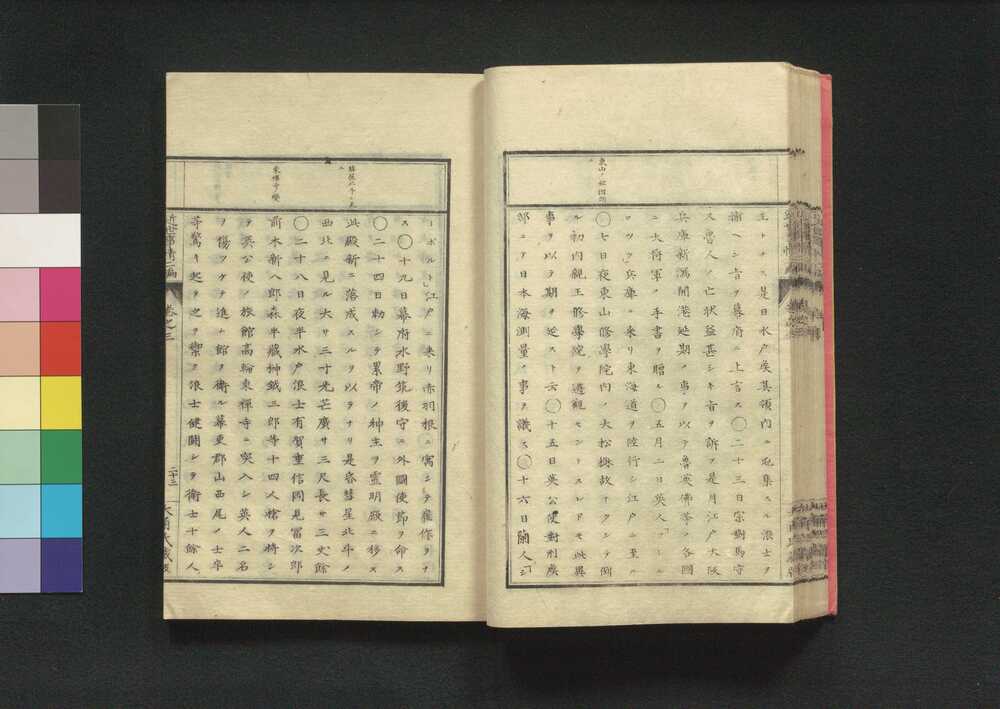 東山ノ松倒ル
主トナス是日水戸矦其領内ニ屯集スル浪士ヲ
捕ヘン旨ヲ幕府ニ上言ス〇二十三日宗對馬守
又魯人ノ亡状益甚シキ旨ヲ訴フ是月江戸大阪
兵庫新潟開港延期ノ事ヲ以テ魯英佛等ノ各國
ニ大將軍ノ手書ヲ贈ル〇五月二日英人「
ツ」兵庫ニ来リ東海道ヲ陸行シ江戸ニ至ル
〇七日夜東山修學院内ノ大松樹故ナクシテ倒
ル初内親王修學院ヲ遊觀セントスレドモ此異
事ヲ以テ期ヲ延スト云〇十五日英公使對州矦
邸ニテ日本海測量ノ事ヲ議ス〇十六日蘭人「シ
ーボルト」江戸ニ来リ赤羽根ニ寓シテ
ス〇十九日幕府水野筑後守ニ外國使節ヲ命ス
〇二十四日勅シテ累帝ノ神主ヲ靈明殿ニ移ス
此殿新ニ落成スルヲ以テナリ是夜彗星北斗ノ
西北ニ見ル大サ三寸光芒廣サ三尺長サ三丈餘
〇二十八日夜半水戸浪士有賀重信岡見富次郎
前木新八郎森半藏榊鉞三郎等十四人槍ヲ持シ
テ英公使ノ旅館高輪東禪寺ニ突入シ英人二名
ヲ傷ツケテ進ム館ヲ衛ル幕吏郡山西尾ノ士卒
等驚キ起テ之ヲ禦ク浪士健闘シテ衛士十餘人
東禪寺ノ變
近世事情二編
卷之三
二十三